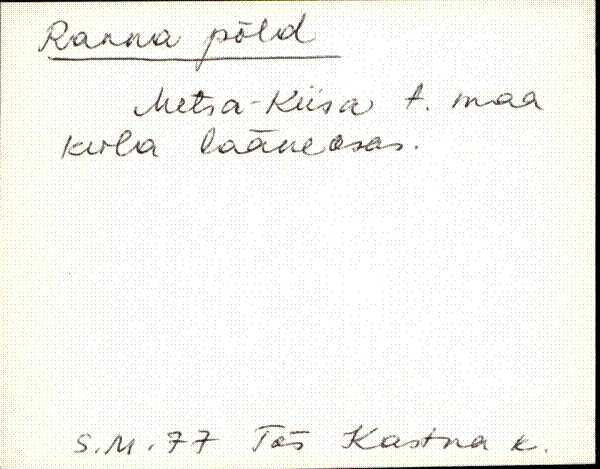 Ranna põld
Metsa-Kiisa t. maa
küla lääneosas.
S.M. 77 Tõs Kastna k.